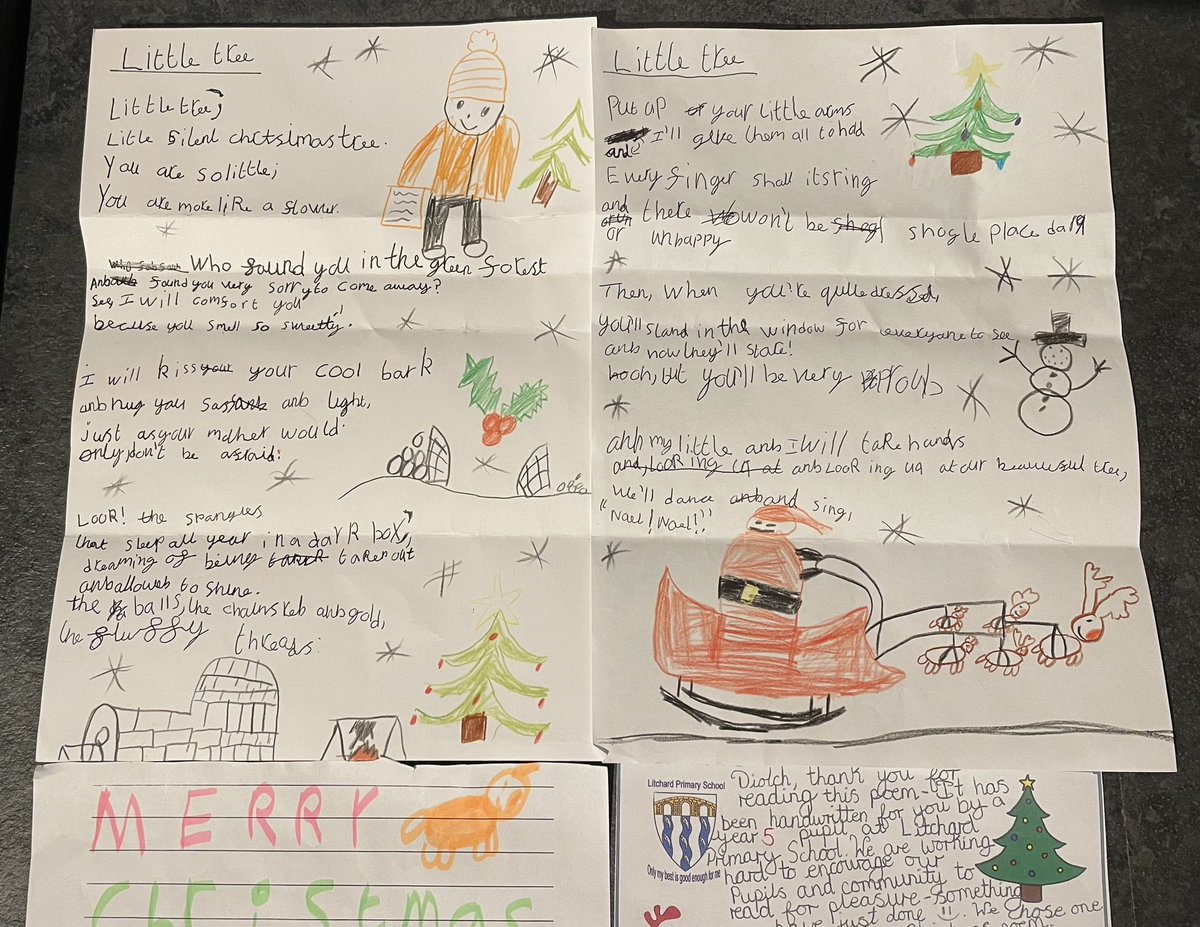 Little tree
Little tree,
Little Silent chrtsimas tree.
You are so little;
You are more like a flower.
Who found you in the green forest
Anb found you very sorry to come away?
See, I will comfort you
because you smell so sweetly.
i will kiss your your cool bark
anb hug you anb light,
just as your mother would.
only don't be afraid!
Look! the spangles
that sleep all year in a dark box,
dreaming of being taken out
anb alloweb to shine.
the balls, the chains reb anb gold,
the fluffy threads:
Little tree
Put up your little arms
I'll give them all to hold
Every finger shall its ring
and there won't be shogle place dark
or unhappy
Then, when you're quite dressed,
you'll stand in the window for everyone to see
anb how they'll stare!
hooh, but you'll be very proub
anb my little anb I will take hands
and, looking up at anb looking up at our beautiful tree,
We'll dance and sing,
"Noel! Noel!"
MERRY
Christmas
Litchard Primary School
Only my best is good enough for me
Diolch, thank you for
reading this poem - It has
been handwritten for you by a
year 5 pupil at Litchard
Primary School. We are working
hard to encourage our
Pupils and community to
read for pleasure - something
have just done. We chose one
poem.